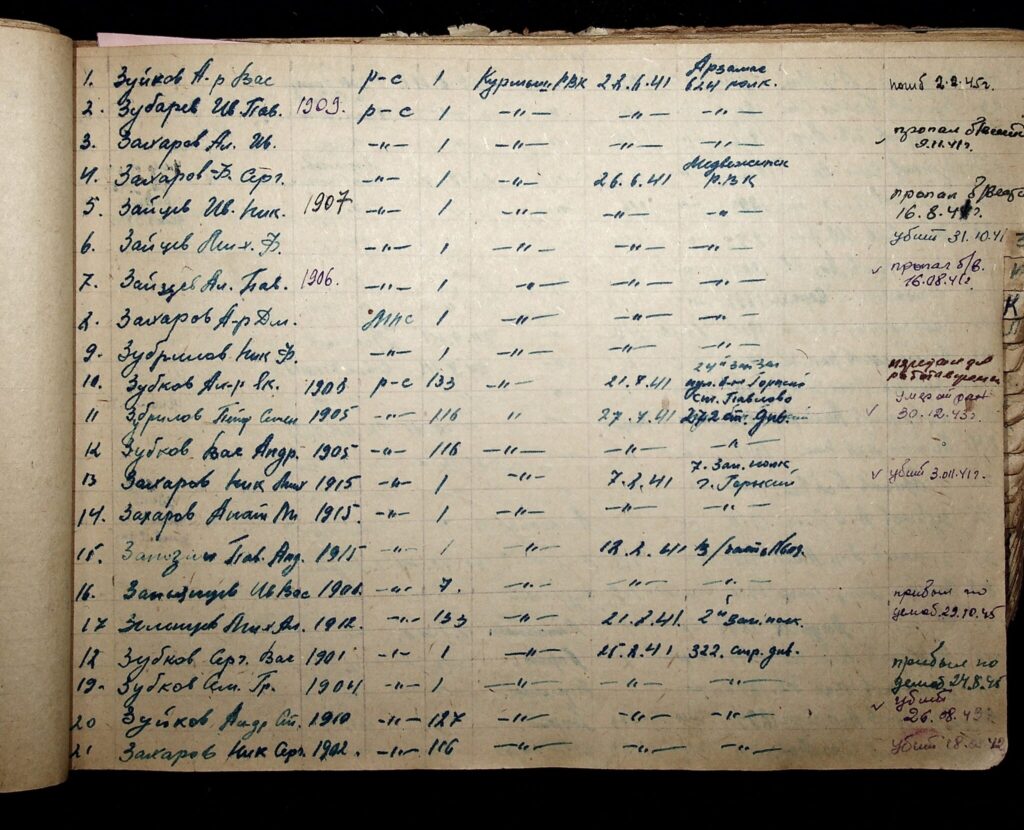 1. Зуйков А-р Вас р-с 1 Курмыш. РВК 28.6.41 Арзамас 624 полк. погиб 2.2.45г.
2. Зубарев Ив. Пав. 1909. р-с 1 -"- -"- -"-
3. Захаров Ал. Ив. -"- 1 -"- -"- -"- пропал 9.11.41г.
4. Захаров Ф. Серг. -"- 1 -"- 26.6.41 Р.В.К
5. Зайцев Ив. Ник. 1907 -"- 1 -"- -"- -"- пропал 16.8.41г.
6. Зайцев Мих. Ф. -"- 1 -"- -"- -"- убит 31.10.41
7. Зайцев Ал. Пав. 1906. -"- 1 -"- -"- -"- пропал б/в. 16.08.41г
8. Захаров А-р Дм. 1 -"- -"- -"-
9. Ник Ф. -"- 1 -"- -"- -"-
10. Зубков Ал-р Як. 1908 р-с 133 -"- 21.7.41 Ст. Павлово
11 1905 -"- 116 " 27.7.41 272 ст. див. умер от ран 30.12.43г.
12 Зубков Вас Андр. 1905 -"- 116 -"- -"- -"-
13 Захаров Ник Мих 1915 -"- 1 -"- 7.8.41 7. Зап. полк г. Горький убит
14. Захаров Анат Ми 1915. -"- 1 -"- -"- -"-
15. Пав. Анд. 1915 -"- 1 -"- 18.8.41
16. Ив Вас -"- 7. -"- -"- -"- прибыл по демоб 29.10.45
17 Мих Ал. 1912. -"- 133 -"- 21.8.41. 2й Зап. полк.
18 Зубков Серг. Вас 1901 -"- 1 -"- 25.8.41 322. стр. див.
19. Зубков Сем. Гр. 1904 -"- 1 -"- -"- -"- прибыл по демоб 24.8.45
20 Зуйков Андр Ст. 1910 -"- 127 -"- -"- -"- убит 26.08.43г
21 Захаров Ник Серг. 1902. -"- 116 -"- -"- -"- убит